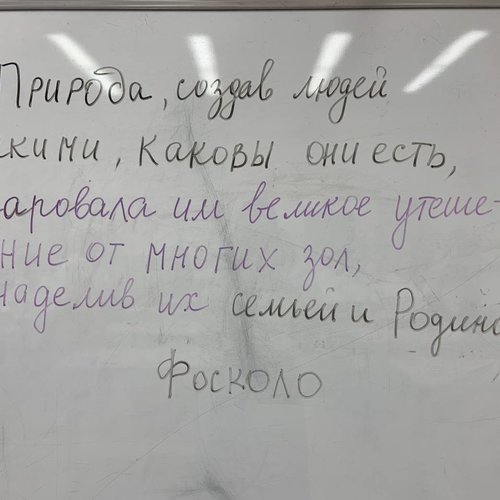 Природа, создав людей
кими, каковы они есть,
аровала им великое утеше-
ние от многих зол,
наделив их семьей и Родино
Фосколо